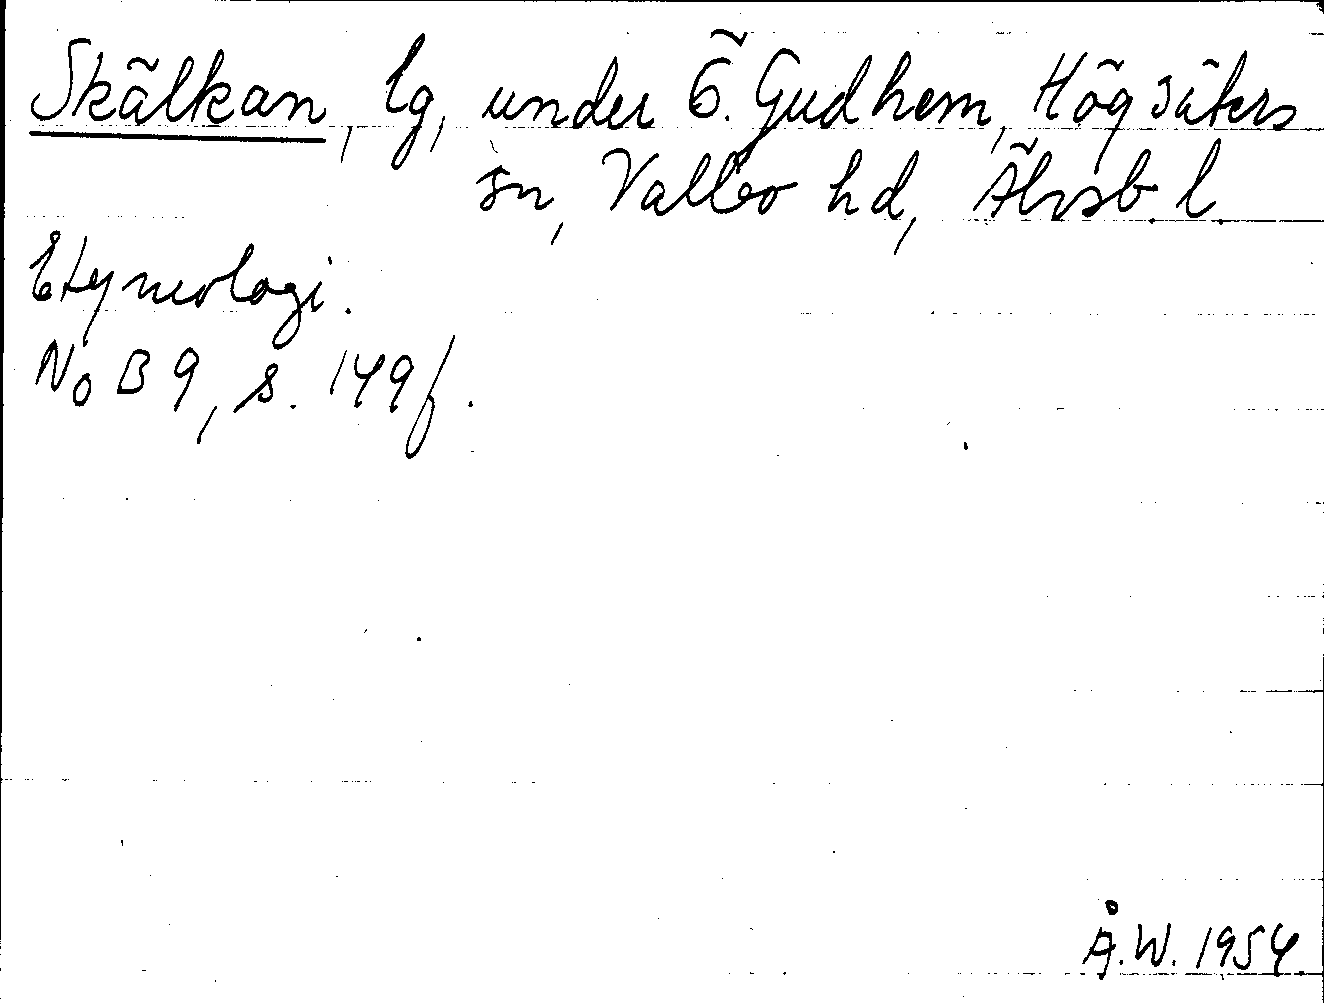 Skälkan, lg, under Ö. Gudhem, Högsäters
sn, Valbo hd, Älvsb. l.
Etymologi.
NoB 9, s. 149 f.
Å.W. 1954.